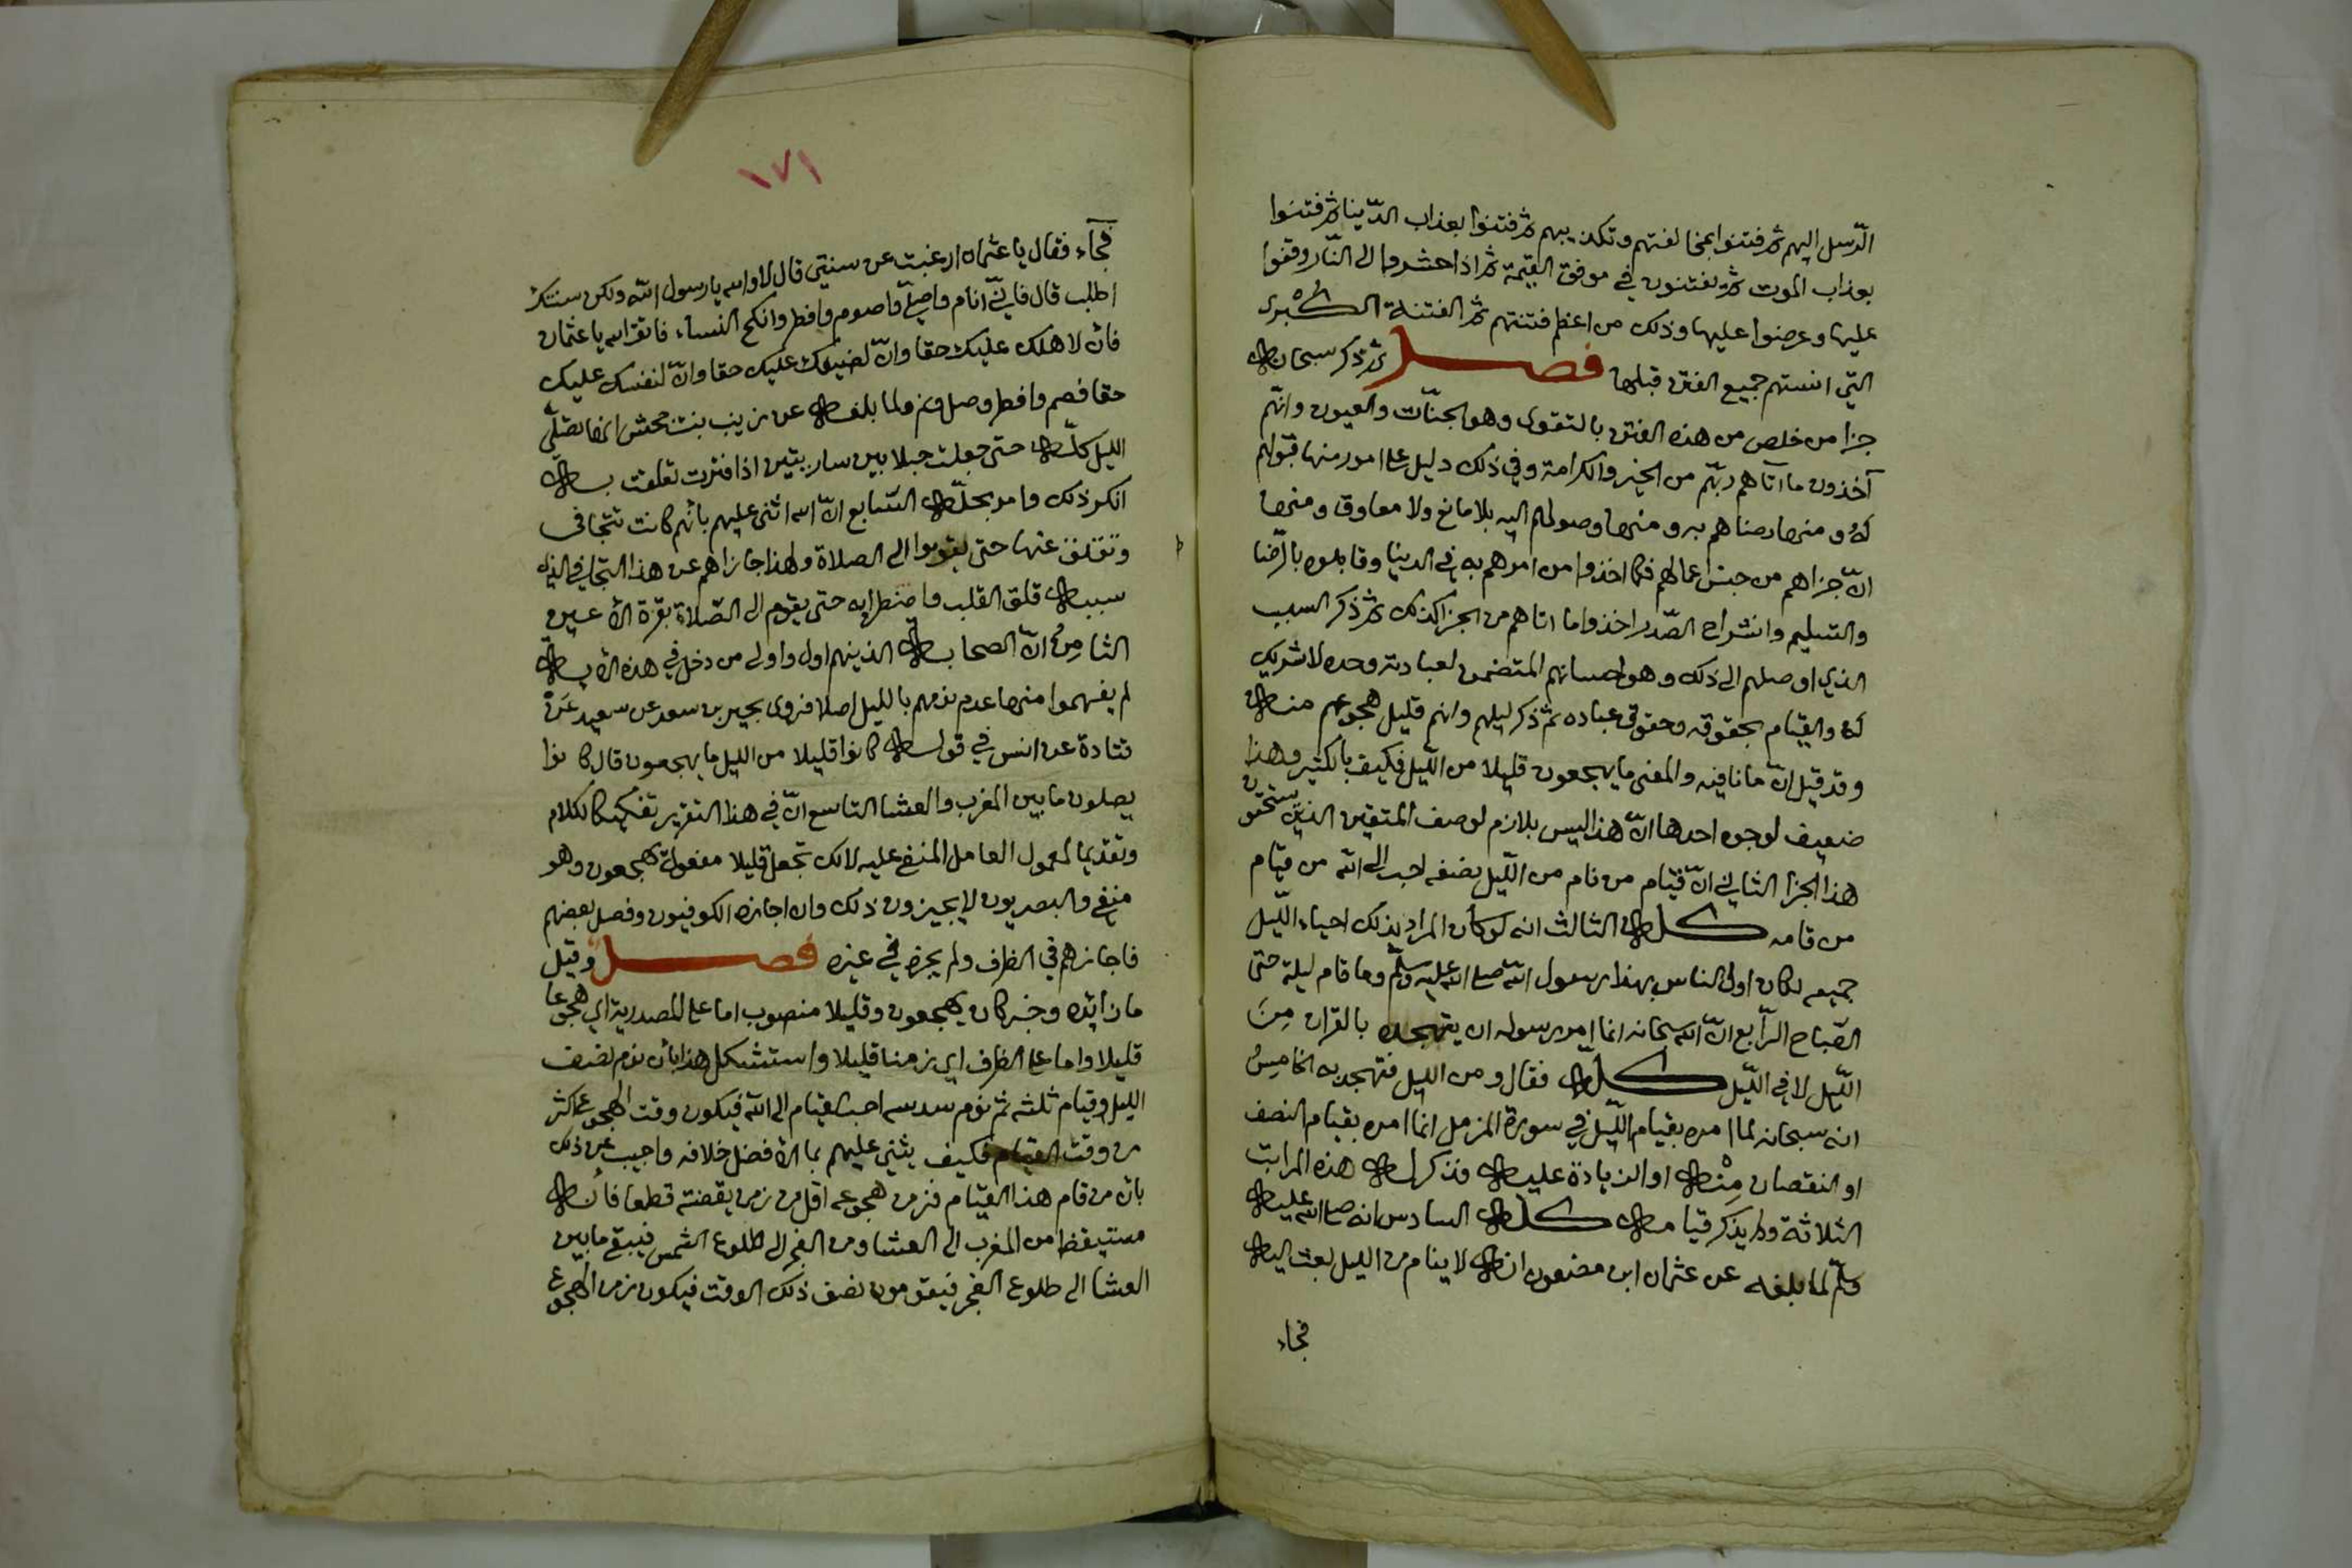 الرّسل اليهم ثم فتنوا بمخالفتهم وتكذيبهم ثم فتنوا بعذاب الدّنيا ثم فتنوا
بعذاب الموت ثم يفتنون في موقف القيمة ثم اذا حشروا الى النّار وقفوا
عليها وعرضوا عليها وذلك من اعظم فتنتهم ثم الفتنة الكبرى
التي انستهم جميع الفتن قبلها فصل ثم ذكر سبحانه
جزا من خلص من هذه الفتن بالتقوى وهو الجنّات والعيون وانّهم
آخذون ما اتاهم ربّهم من الخير والكرامة وفي ذلك دليل على امور منها قبولهم
له ومنها رضاهم به ومنها وصولهم اليه بلا مانع ولا معاوق ومنها
انّ جزاهم من جنس اعمالهم فكما اخذوا من امرهم به في الدنيا وقابلوه بالرّضا
والتسليم وانشراح الصّدر اخذوا ما اتاهم من الجزا كذلك ثم ذكر السبب
الذي اوصلهم الى ذلك وهو احسانهم المتضمن لعبادته وحده لا شريك
له والقيام بحقوقه وحقوق عباده ثم ذكر ليلهم وانهم قليل هجوعهم منه
وقد قيل انّ ما نافيه والمعنى ما يهجعون قليلا من اللّيل فكيف بالكثير وهذا
ضعيف لوجوه احدها انّ هذا ليس بلازم لوصف المتقين الذين يستحقون
هذا الجزا الثاني انّ قيام من نام من اللّيل نصفه احب الى الله من قيام
من قامه كله الثالث انه لو كان المراد بذلك احياء اللّيل
جميعه لكان اولى الناس بهذا رسول الله صلى الله عليه وسلّم وما قام ليلة حتى
الصّباح الرّابع انّ الله سبحانه انما امر رسوله ان يتهجد بالقران مِنَ
اللّيل لا في اللّيل كلّه فقال ومن الليل فتهجد به الخامِسُ
انه سبحانه لما امره بقيام اللّيل في سورة المزمل انما امره بقيام النصف
او النقصان مِنْه او الزيادة عليه فذكر له هذه المراتب
الثلاثة ولم يذكر قيامه كله السادس انه صلى الله عليه
وسلّم لما بلغه عن عثمان ابن مضعون انه لا ينام من الليل بعث اليه
فجاء
١٧١
فجآء فقال يا عثمان ارغبت عن سنتي قال لا والله يا رسول الله ولكن سنتك
اطلب قال فانّي انام واصلّي واصوم وافطر وانكح النساء فاتق الله يا عثمان
فانّ لاهلك عليك حقا وانّ لضيفك عليك حقا وانّ لنفسك عليك
حقا فصم وافطر وصل ونم ولما بلغه عن زينب بنت جحش انها تصلّي
الليل كلّه حتى جعلت حبلا بين ساريتين اذا فترت تعلقت به
انكر ذلك وامر بحلّه السّابع انّ الله اثنى عليهم بانهم كانت تتجافى
وتقلق عنها حتى يقوموا الى الصلاة ولهذا جازاهم عن هذا التجافي الذي
سببه قلق القلب واضطرابه حتى يقوم الى الصّلاة بقرّة الاعين
الثامِنُ انّ الصحابه الذينهم اول واولى من دخل في هذه الايه
لم يفهموا منها عدم نومهم بالليل اصلا فروى يحيى بن سعد عن سعيد عَنْ
قتادة عن انس في قوله كانوا قليلا من الليل ما يهجعون قال كانوا
يصلون ما بين المغرب والعشا التاسع انّ في هذا التقرير تفكيكا للكلام
وتقديما لمعمول العامل المنفي عليه لانك تجعل قليلا مفعول يهجعون وهو
منفي والبصريون لا يجيزون ذلك وان اجازه الكوفيون وفصل بعضهم
فاجازهم في الظرف ولم يجزه في غيره فصل وقيل
ما زائده وخبر كان يهجعون وقليلا منصوب اما على المصدرية اي هجوعا
قليلا واما على الظرف اي زمنا قليلا واستشكل هذا بانّ نوم نصف
الليل وقيام ثلثه ثم نوم سدسه احب القيام الى الله فيكون وقت الهجوع اكثر
من وقت القيام فكيف يثني عليهم بما الافضل خلافه واجيب عن ذلك
بانّ من قام هذا القيام فزمن هجوعه اقل من زمن يقضته قطعا فانه
مستيقظ من المغرب الى العشا ومن الفجر الى طلوع الشمس فيبقى ما بين
العشا الى طلوع الفجر فيقومون نصف ذلك الوقت فيكون زمن الهجوع